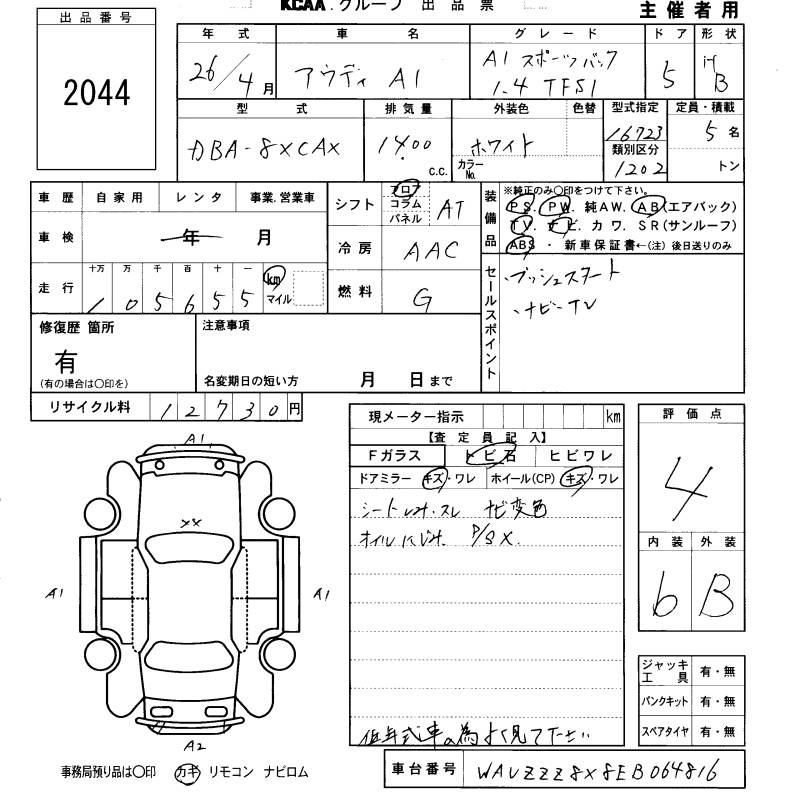 KCAA.グループ 出品票
主催者用
出品番号
2044
年式
26/4月
車名
アウディ A1
グレード
A1 スポーツバック
1.4 TFSI
ドア
5
形状
HB
型式
DBA-8XCAX
排気量
1400
c.c.
外装色
色替
ホワイト
カラーNo.
型式指定
16723
類別区分
1202
定員・積載
5名
トン
車歴 自家用 レンタ 事業.営業車
車検 年 月
走行 十万 万 千 百 十 一
1 0 5 6 5 5
km
マイル
シフト
フロア
コラム
パネル
AT
冷房 AAC
燃料 G
装備品
※純正のみ○印をつけて下さい。
PS. PW. 純AW. AB(エアバック)
TV. ナビ. カワ. SR(サンルーフ)
ABS ・ 新車保証書←(注) 後日送りのみ
セールスポイント
、プッシュスタート
、ナビーTV
修復歴 箇所
有
(有の場合は○印を)
注意事項
名変期日の短い方 月 日まで
リサイクル料 12730円
現メーター指示 km
【査定員記入】
Fガラス トビ石 ヒビワレ
ドアミラー キズ・ワレ ホイール(CP) キズ・ワレ
シートしみ・スレ ナビ変色
オイルにじみ. P/S X.
低年式車の為よく見て下さい
評価点
4
内装 外装
6 B
ジャッキ
工具
有・無
パンクキット 有・無
スペアタイヤ 有・無
A1
XX
A1
A1
A2
事務局預り品は○印 カギ リモコン ナビロム
車台番号 WAUZZZ8X8EB064816